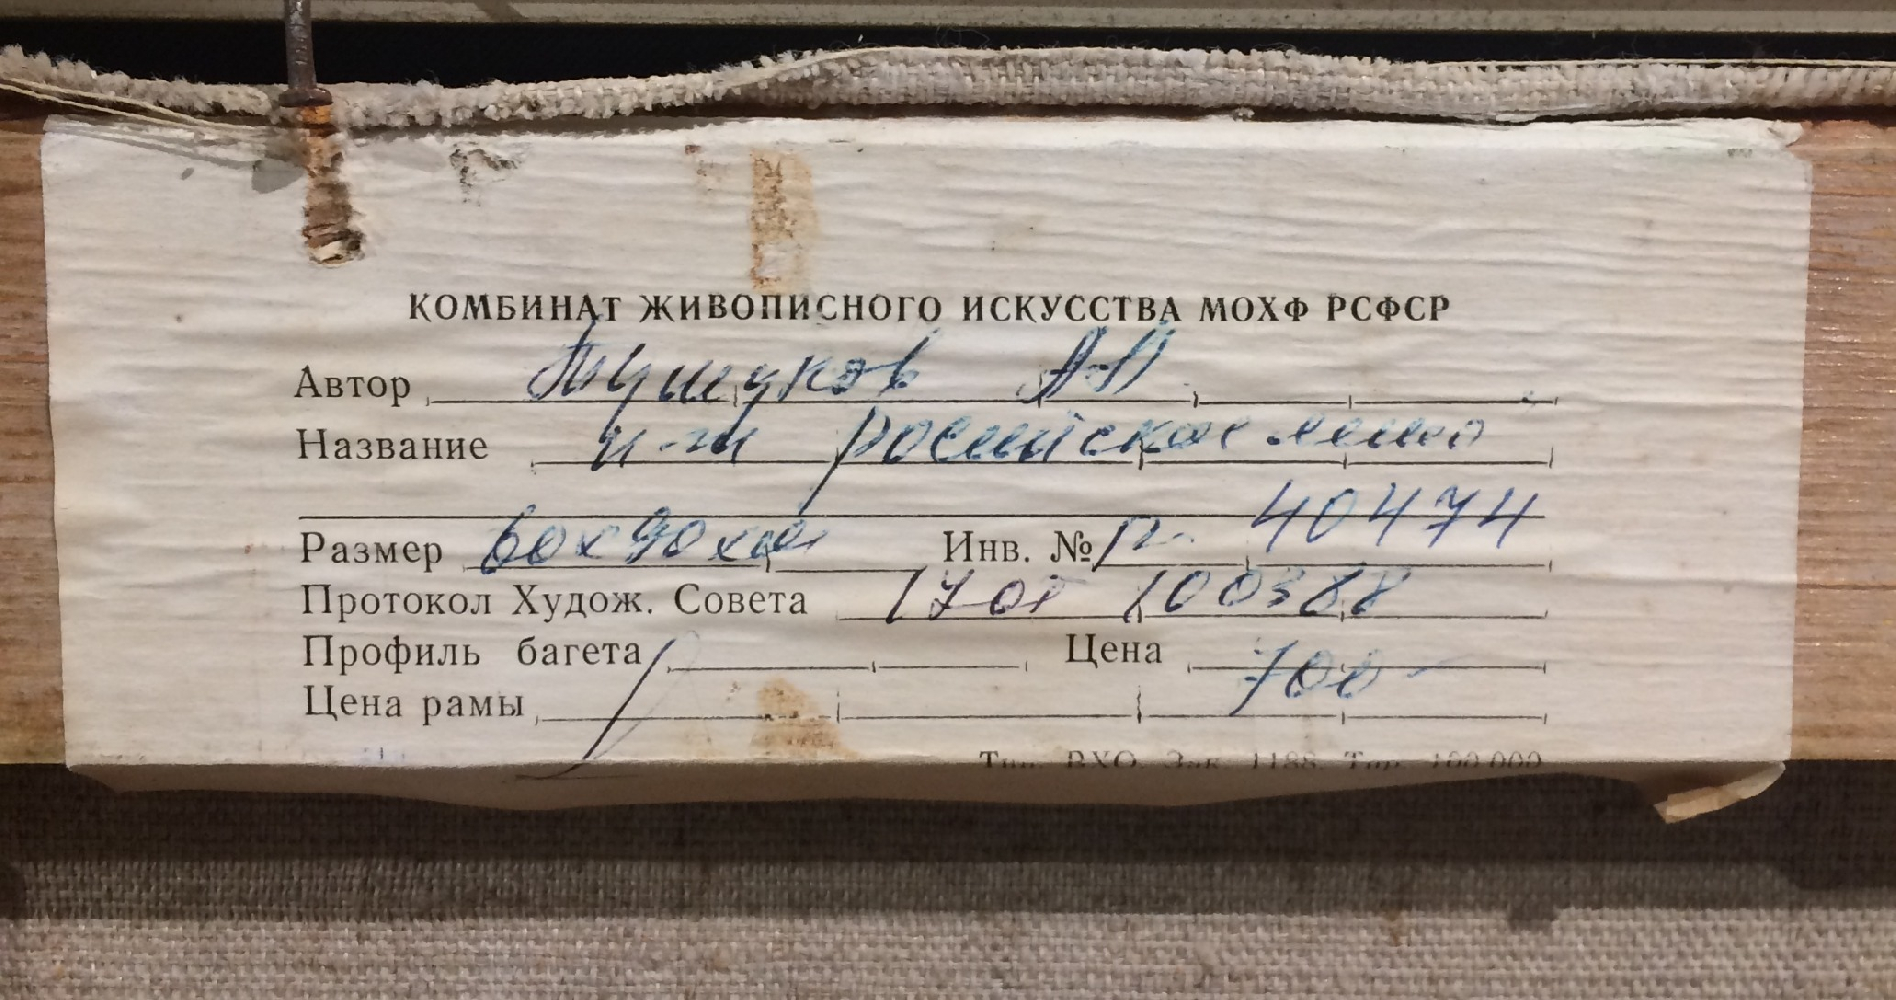 КОМБИНАТ ЖИВОПИСНОГО ИСКУССТВА МОХФ РСФСР
Автор Тушуков А-П
Название и-ш российское лето
Размер 60х90 хм Инв. № п. 40474
Протокол Худож. Совета 17 от 100388
Профиль багета Цена 700-
Цена рамы
Тип. ВХО. Зак. 1188. Тир. 100.000